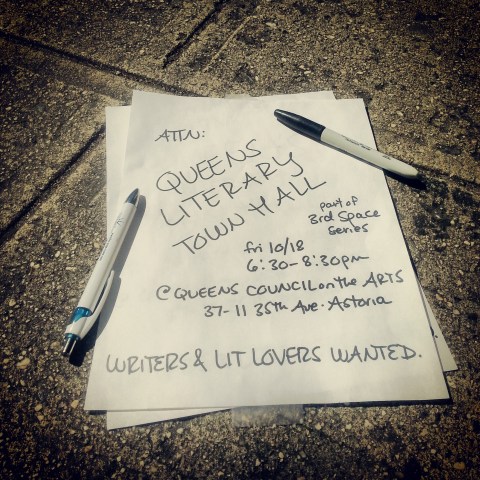 ATTN:
QUEENS
LITERARY
TOWN HALL
part of
3rd Space
series
fri 10/18
6:30-8:30pm
@ QUEENS COUNCIL on the ARTS
37-11 35th Ave. Astoria
WRITERS & LIT LOVERS WANTED.